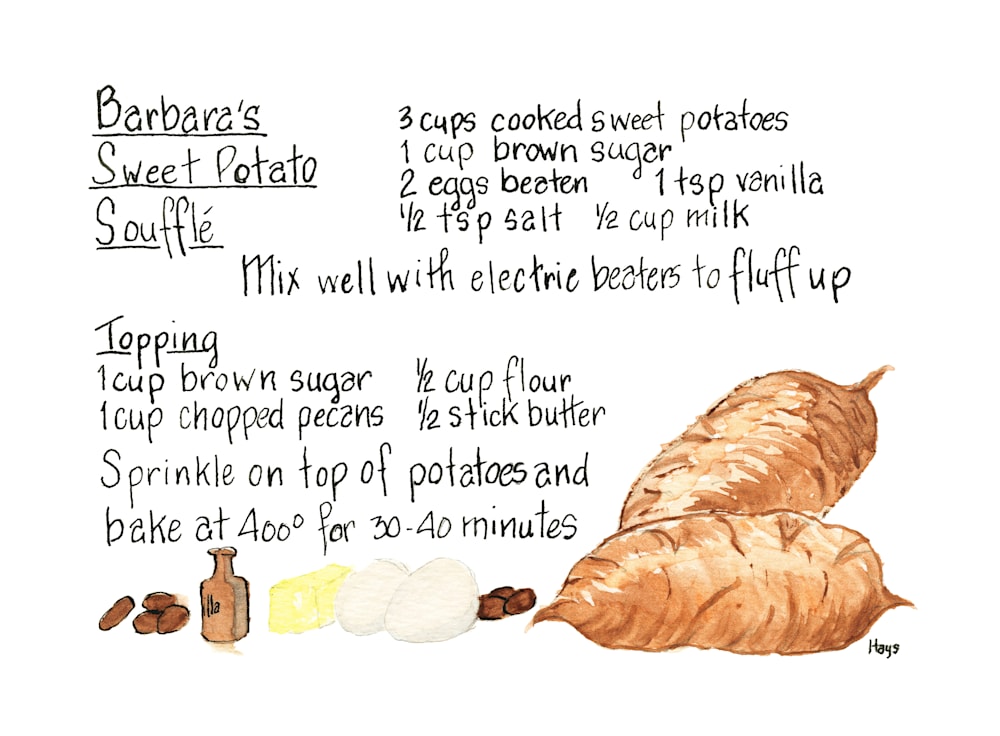 Barbara's
Sweet Potato
Soufflé
3 cups cooked sweet potatoes
1 cup brown sugar
2 eggs beaten 1 tsp vanilla
1/2 tsp salt 1/2 cup milk
Mix well with electric beaters to fluff up
Topping
1 cup brown sugar 1/2 cup flour
1 cup chopped pecans 1/2 stick butter
Sprinkle on top of potatoes and
bake at 400° for 30-40 minutes
lla
Hays